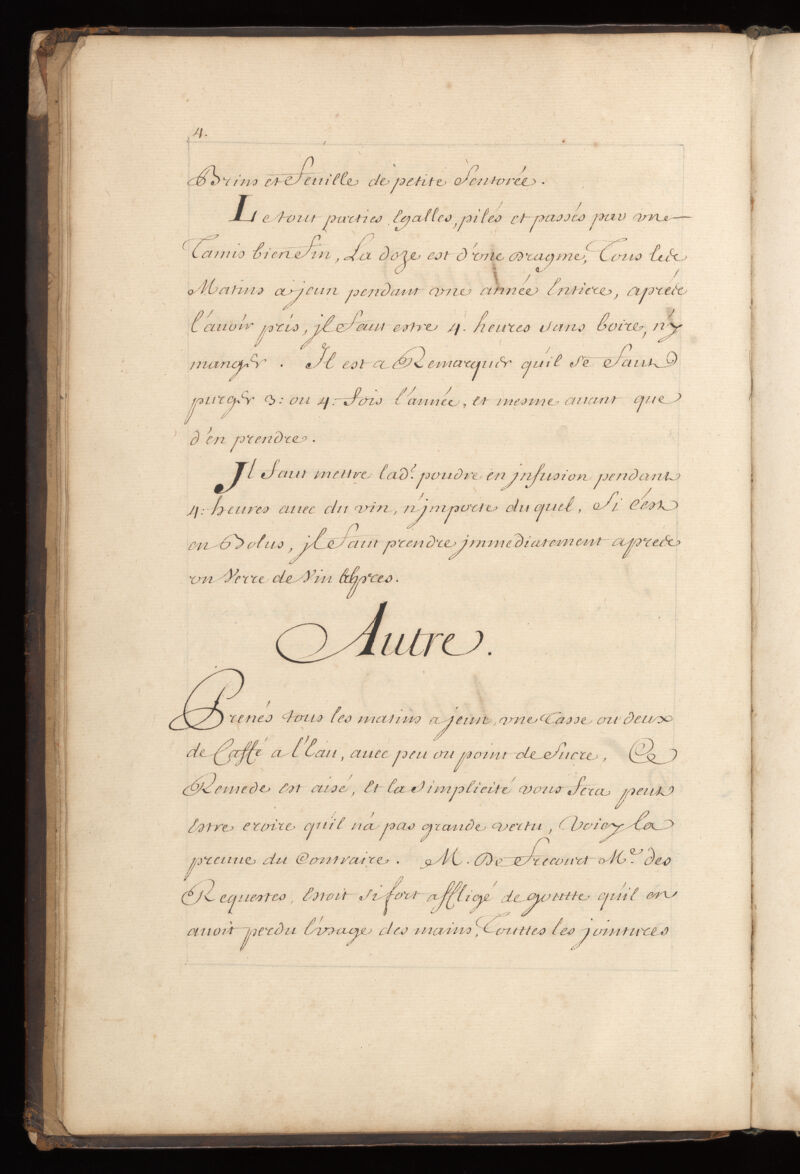 4.
Brins et Feuille de petite Sentorée.
Le tout parties Egalles, pilés et passés par vne
Tamis bien Fin, La doze est d'vne Dragme, Tous les
Matins a jeun pendant vne année Entiere, aprés
l'auoir pris, jl Faut estre 4. heures sans boire, n'y
manger. Il est a Remarquer qu'il se Faut
purger 3: ou 4: Fois l'année, et mesme auant que
d'en prendre.
Jl Faut mettre lad.e poudre en jnfusion pendant
4: heures auec du vin, n'jmporte du quel, Si C'est
en Bolus, jl Faut prendre jmmediatement aprés
vn Verre de Vin
Autre.
Prenés tous les matins a jeun, vne Tasse ou deux
de Caffé a l'Eau, auec peu ou point de Sucre, Ce
Remede Est aisé, Et la Simplicité vous Fera peut
Estre croire qu'il n'a pas grande vertu, Voicy la
preuue du Contraire. M. De Frecourt M.e des
Requestes, Estoit si fort affligé de goutte qu'il en
auoit perdu l'vsage des mains, Touttes les jointures